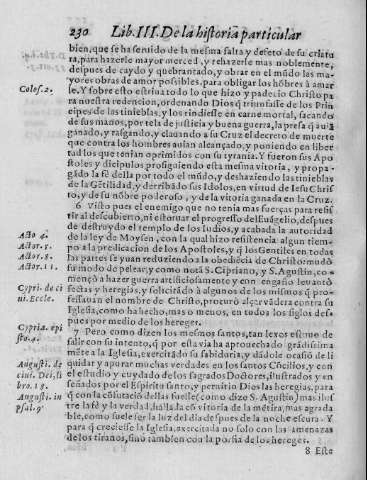 230 Lib. III. De la historia particular
bien, que se ha seruido de la mesma falta y defeto de su criatu
ra, para hazerle mayor merced, y rehazerle mas noblemente,
despues de caydo y quebrantado, y obrar en el mũdo las ma-
yores obras de amor possibles, para obligar los hõbres à amar
Colos. 2.
le. Y sobre esto estriua todo lo que hizo y padecio Christo pa
ra nuestra redencion, ordenando Dios q̃ triunfasse de los Prin
cipes de las tinieblas, y los rindiesse en carne mortal, sacando
de sus manos, por tela de justicia y buena guerra, la presa q̃ auiã
ganado, y rasgando, y clauando a su Cruz el decreto de muerte
que contra los hombres auian alcançado, y poniendo en liber
tad los que tenian oprimidos con su tyrania. Y fueron sus Apo
stoles y dicipulos prosiguiendo esta mesma vitoria, y propa-
gãdo la fè dessa por todo el mũdo, y deshaziendo las tinieblas
de la Gẽtilidad, y derribãdo sus Idolos, en virtud de Iesu Chris
to, y de su nõbre poderoso, y de la vitoria ganada en la Cruz.
6 Visto pues el enemigo que no tenia mas fuerças para resis
tir al descubierto, ni estoruar el progresso del Euãgelio, despues
de destruydo el templo de los Iudios, y acabada la autoridad
Acto 4.
de la ley de Moysen, con la qual hizo resistencia algun tiem-
Actor. 5.
po a la predicacion de los Apostoles, y q̃ los Gentiles en todas
Actor. 8.
las partes se yuan reduziendo a la obediẽcia de Christo: mudò
Actor. 11.
su modo de pelear, y como notà S. Cipriano, y S. Agustin, co-
mençò a hazer guerra artificiosamente y con engaño leuantò
Cypri. de ci
sectas y heregias, y persuadiẽdo à algunos de los mismos q̃ pro-
ui. Eccle.
fessauan el nombre de Christo, procurò alçar vãdera contra su
Iglesia, como ha hecho, mas o menos, en todos los siglos des-
pues por medio de los hereges.
Cypria. epi
sto. 4.
7 Pero como dizen los mesmos santos, tan lexos estuuo de
salir con su intento, q̃ por esta via ha aprouechado grãdissima
mẽte a la Iglesia, exercitãdo su sabiduria, y dãdole ocasiõ de li
Augusti. de
quidar y apurar muchas verdades en los santos Cõcilios, y con
ciui. Dei, li
el estudio y cuydado de los sagrados Doctores, ilustrados y en
bro. 18.
señados por el Espiritu santo, y permitio Dios las heregias, para
Augusti. in
q̃ con la cõfutaciõ dellas suelle (como dize S. Agustin) mas ilus
psal. 9.
tre la fè y la verdad, hallãla cõ vitoria de la mẽtira, mas agrada
ble, como suele ser la luz del dia despues de la noche escura. Y
para q̃ creciesse la Iglesia, exercitada no solo con las amenazas
de los tiranos, sino tambien con la porfia de los hereges.
8 Esta